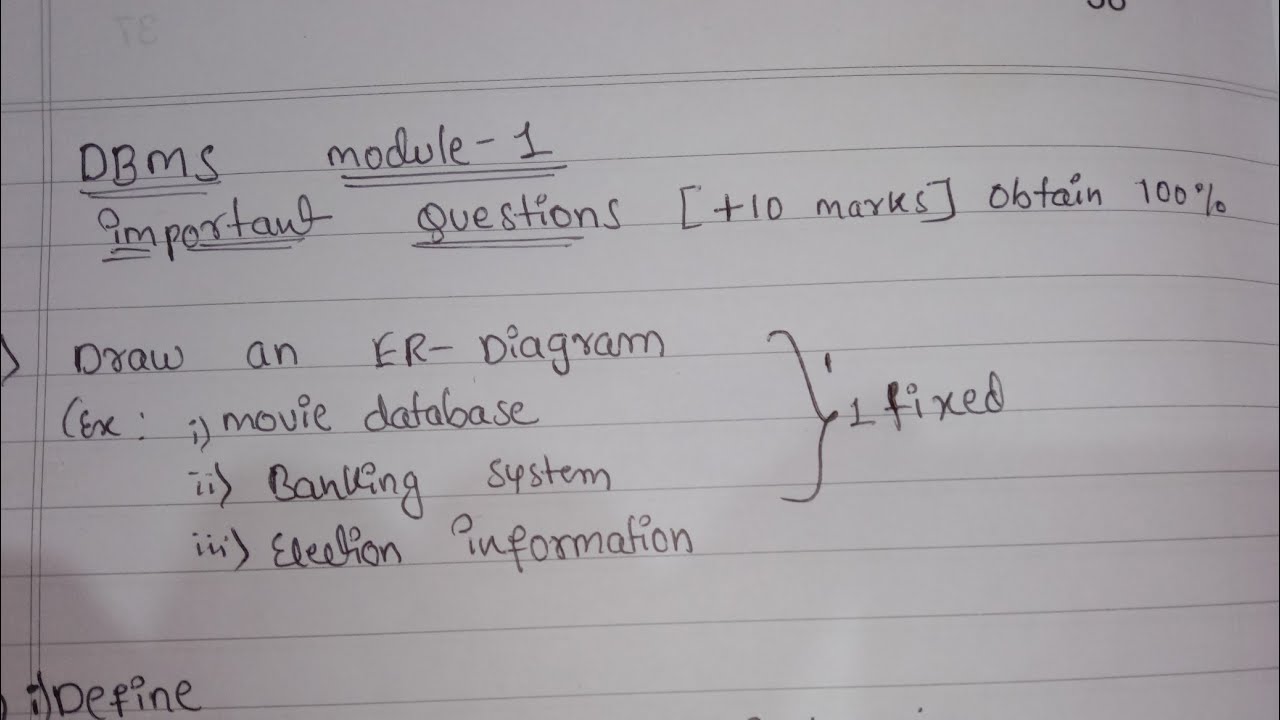 DBMS module-1
important questions [+10 marks] obtain 100%
Draw an ER-Diagram
(Ex: i) movie database
1 fixed
ii) Banking system
iii) Election information
i) Define